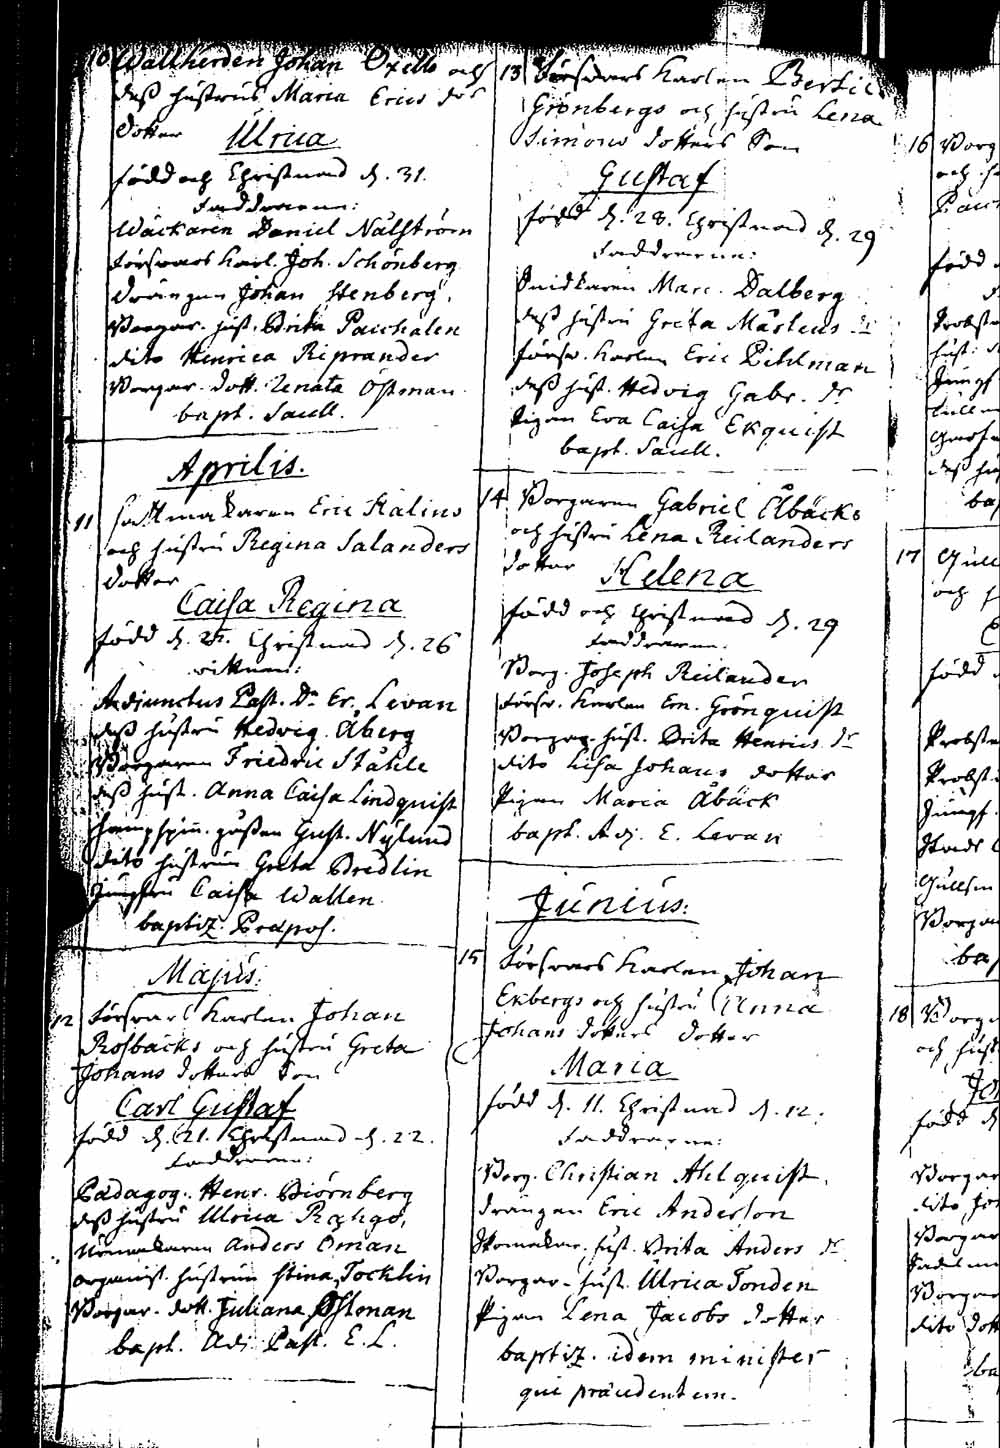 10 Wallherden Johan Oxello och
dess hustrus Maria Erics
dotter Ulrica
född och Christnad d. 31.
Faddrarne:
Wäckaren Daniel Nälström
försvars karl. Joh. Schönberg
Drängen Johan Stenberg
Borgar. hust. Brita Paschalen
dito Henrica Riprander
Borgar. dott. Renata Östman
bapt. Sacell.
Aprilis.
11 Hattmakaren Eric Stalins
och hustru Regina Salanders
dotter
Caisa Regina
född d. Christnad d. 26
Adjunctus Past. Dn Er. Levan
dess hustru Hedvig Åberg
Borgaren Friedric Ståhle
dess hust. Anna Caisa Lindquist
Gust. Nylund
dito hustrun Greta Bredlin
Jungfru Caisa Wallen
baptiz. Præpos.
Majus.
12 Försvars karlen Johan
Rosbäcks och hustru Greta
Johans dotters Son
Carl Gustaf
född d. 21. Christnad d. 22.
Faddrarne:
Pædagog. Henr. Biörnberg
dess hustru Ulrica
Urmakaren Anders Öman
organist. hustrun Stina Tocklin
Borgar. dott. Juliana Östman
bapt. Adj. Past. E. L.
13 Försvars karlen
Grönbergs och hustru Lena
Simons dotters Son
Gustaf
född d. 28. Christnad d. 29
Faddrarne:
Marc. Dalberg
dess hustru Greta Mårtens dr
försv. karlen Eric Pihlman
dess hust. Hedvig Gabr. dr
Pigan Eva Caisa Ekquist
bapt. Sacell.
14 Borgaren Gabriel Åbäcks
och hustru Lena Reilanders
dotter Helena
född och Christnad d. 29
Faddrarne:
Borg. Joseph Reilander
försv. karlen Em. Grönquist
Borgar. hust. Brita Henrics dr
dito Lisa Johans dotter
Pigan Maria Åbäck
bapt. Adj. E. Levan
Junius:
15 Försvars karlen Johan
Ekbergs och hustru Anna
Johans dotters dotter
Maria
född d. 11. Christnad d. 12.
Faddrarne:
Borg. Christian Ahlquist
drängen Eric Anderson
Skomakar. hust. Brita Anders dr
Borgar. hust. Ulrica Tonden
Pigan Lena Jacobs dotter
baptiz. idem minister
qui præcedentem.
16 Borg
och
född
17 Gull
och
född
Probst
Probst
Jungf.
Borgar
18 Borg
och hust
född d
Borgar
dito
Borgar
Borgar
dito dott